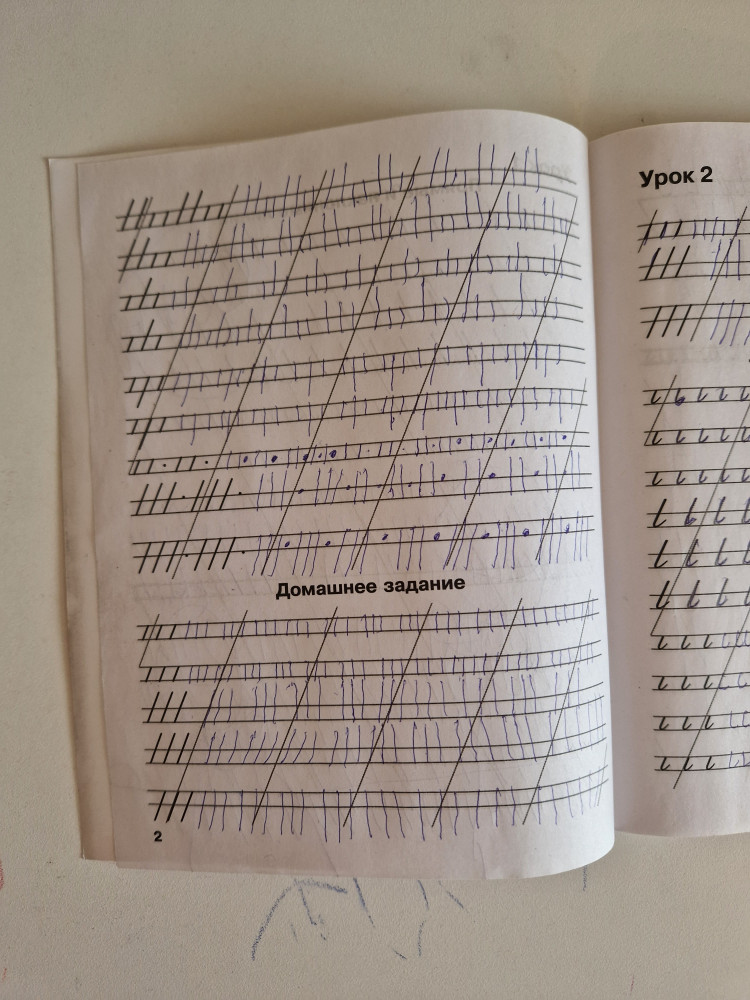 Домашнее задание
2
Урок 2